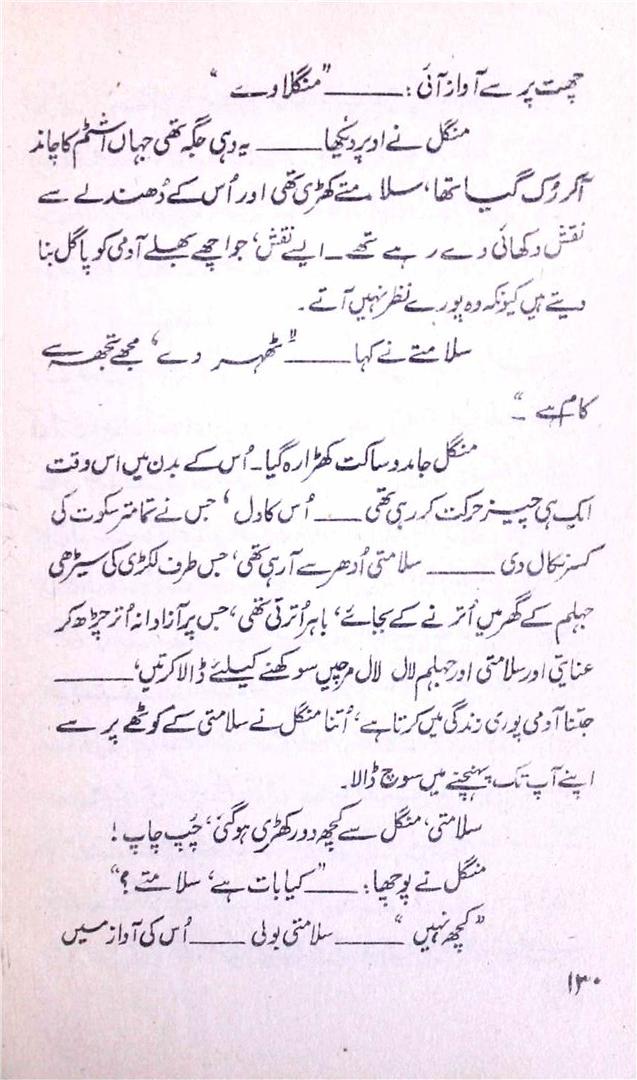 چھت پر سے آواز آئی: ——— "منگلا وے"
منگل نے اوپر دیکھا ——— یہ وہی جگہ تھی جہاں اشٹم کا چاند
آکر رُک گیا تھا، سلامتے کھڑی تھی اور اُس کے دُھندلے سے
نقش دکھائی دے رہے تھے۔ ایسے نقش، جو اچھے بھلے آدمی کو پاگل بنا
دیتے ہیں کیونکہ وہ پورے نظر نہیں آتے۔
سلامتے نے کہا ——— "ٹھہر وے، مجھے تجھ سے
کام ہے۔"
منگل جامد و ساکت کھڑا رہ گیا۔ اُس کے بدن میں اس وقت
ایک ہی چیز حرکت کر رہی تھی ——— اُس کا دل، جس نے تمام تر سکوت کی
کسر نکال دی ——— سلامتی اُدھر سے آ رہی تھی، جس طرف لکڑی کی سیڑھی
جہلم کے گھر میں اُترنے کے بجائے، باہر اُترتی تھی، جس پر آزادانہ اُتر چڑھ کر
عنایتی اور سلامتی اور جہلم لال لال مرچیں سوکھنے کیلئے ڈالا کرتیں، ———
جتنا آدمی پوری زندگی میں کرتا ہے، اُتنا منگل نے سلامتی کے کوٹھے پر سے
اپنے آپ تک پہنچنے میں سوچ ڈالا۔
سلامتی، منگل سے کچھ دور کھڑی ہو گئی، چُپ چاپ!
منگل نے پوچھا: ——— "کیا بات ہے، سلامتے؟"
"کچھ نہیں" ——— سلامتی بولی ——— اُس کی آواز میں
۱۳۰